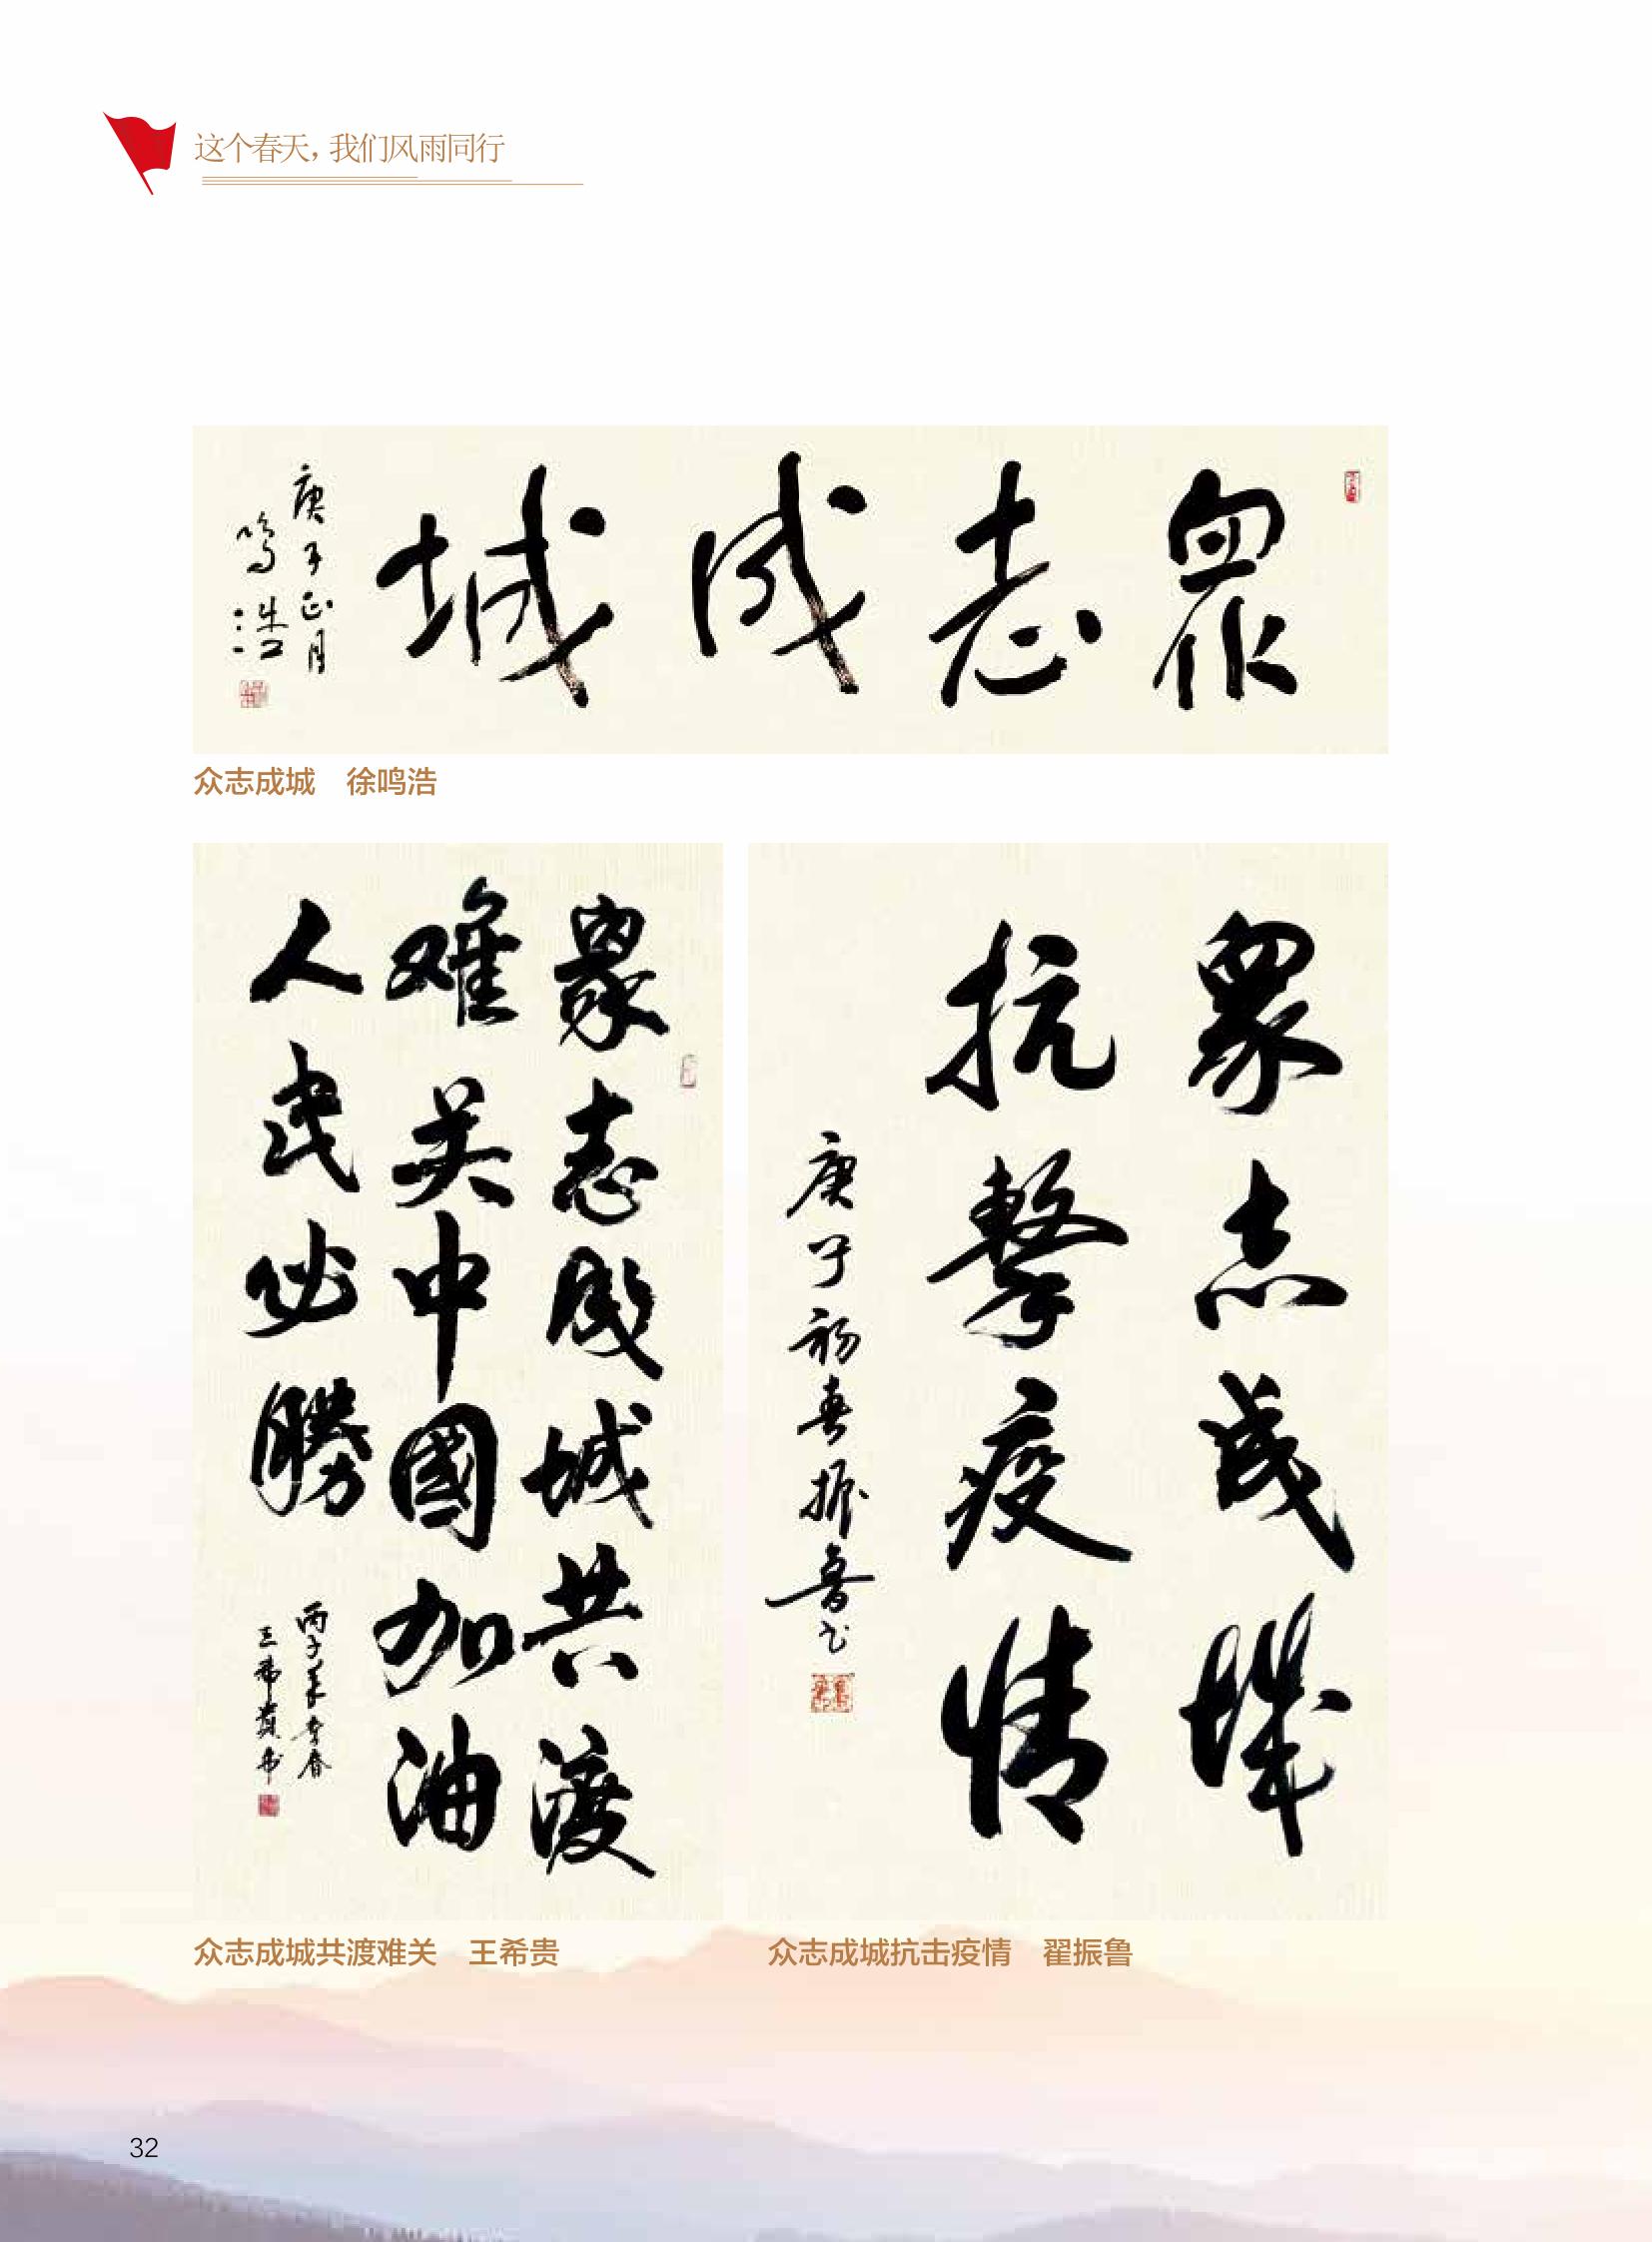 这个春天，我们风雨同行
眾志成城
庚子正月
鸣浩
众志成城　徐鸣浩
眾志成城共渡
难关中國加油
人民必勝
王希贵书
众志成城共渡难关　王希贵
眾志成城
抗擊疫情
庚子初春振鲁书
众志成城抗击疫情　翟振鲁
32